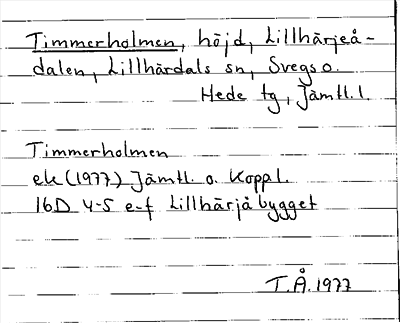 Timmerholmen, höjd, Lillhärjeå-
dalen, Lillhärdals sn, Svegs o.
Hede tg, Jämtl. l.
Timmerholmen
ek (1977) Jämtl. o. Koppl.
16D 4-5 e-f Lillhärjåbygget
T.Å. 1977